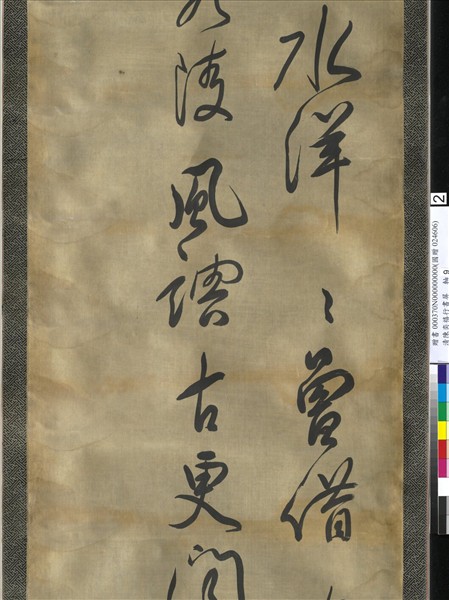 水洋〻曾借
陵風古更
2
贈書 000370N000000000(國贈 024606)
清陳奕禧行書屏 軸 9